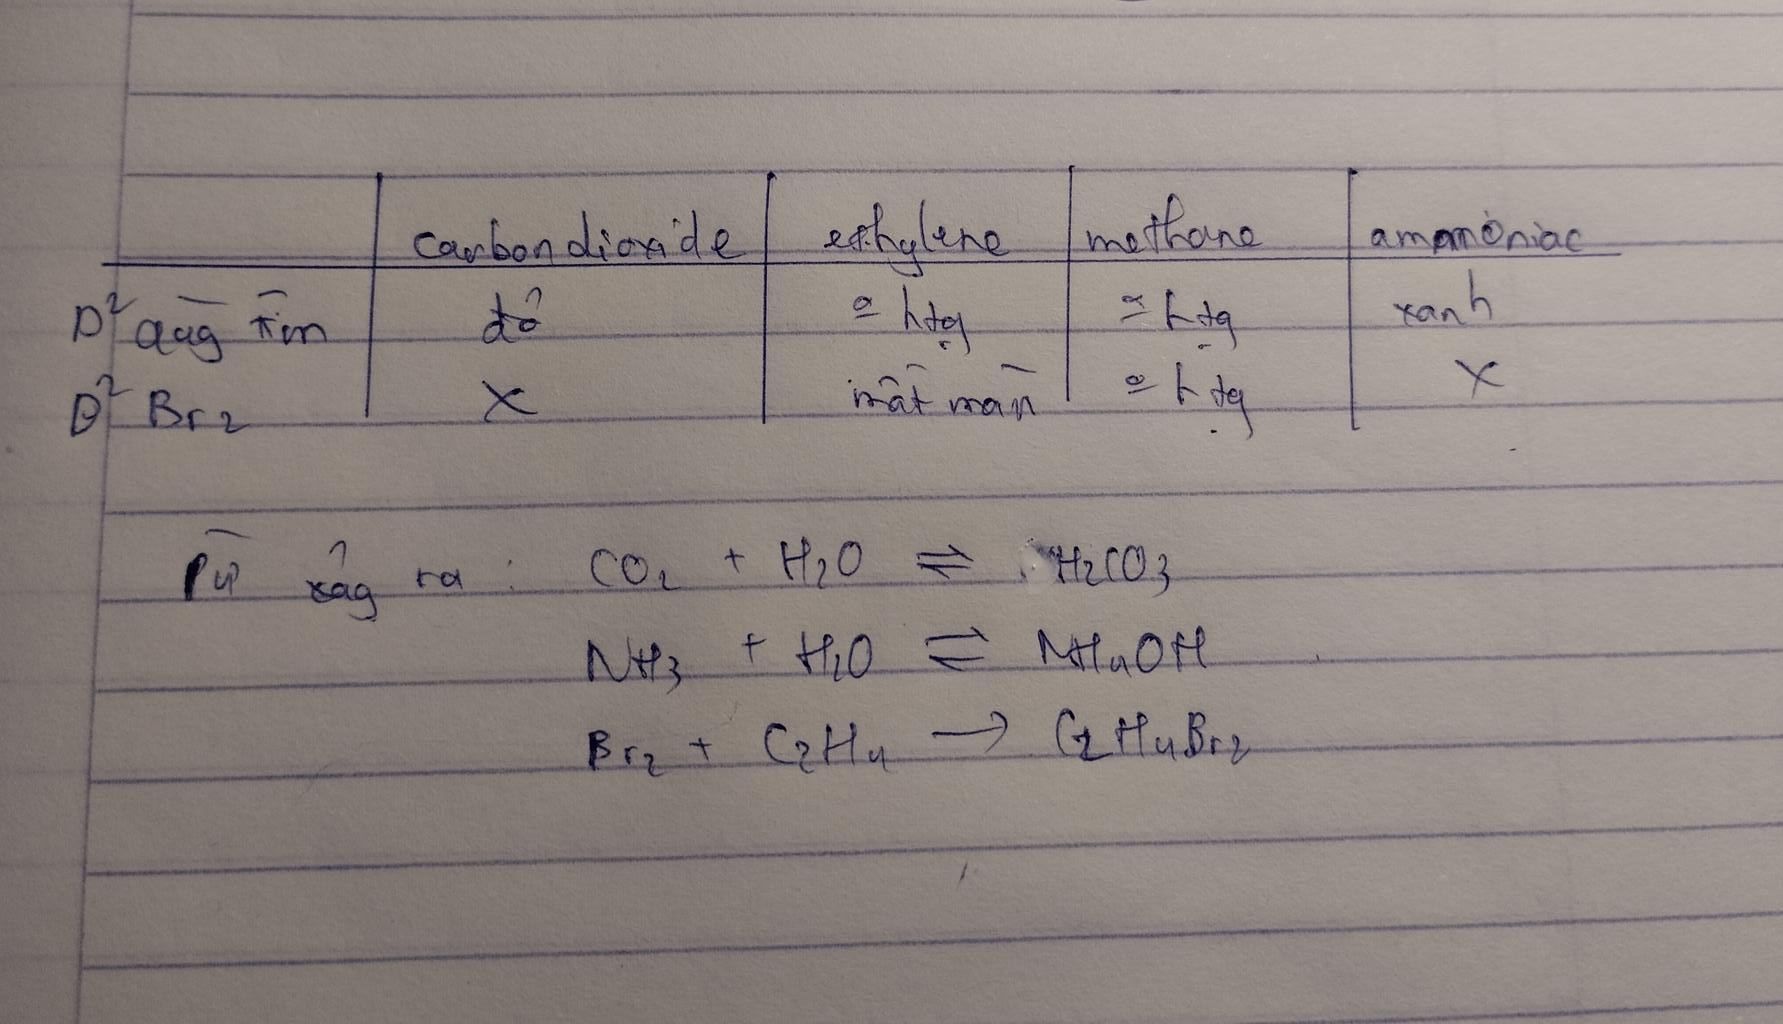 carbon dioxide ethylene methane amamoniac
D² quỳ tím đỏ ko htg ko htg xanh
D² Br2 X mất màu ko htg X
Pứ xảy ra : CO2 + H2O ⇌ H2CO3
NH3 + H2O ⇌ NH4OH
Br2 + C2H4 → C2H4Br2